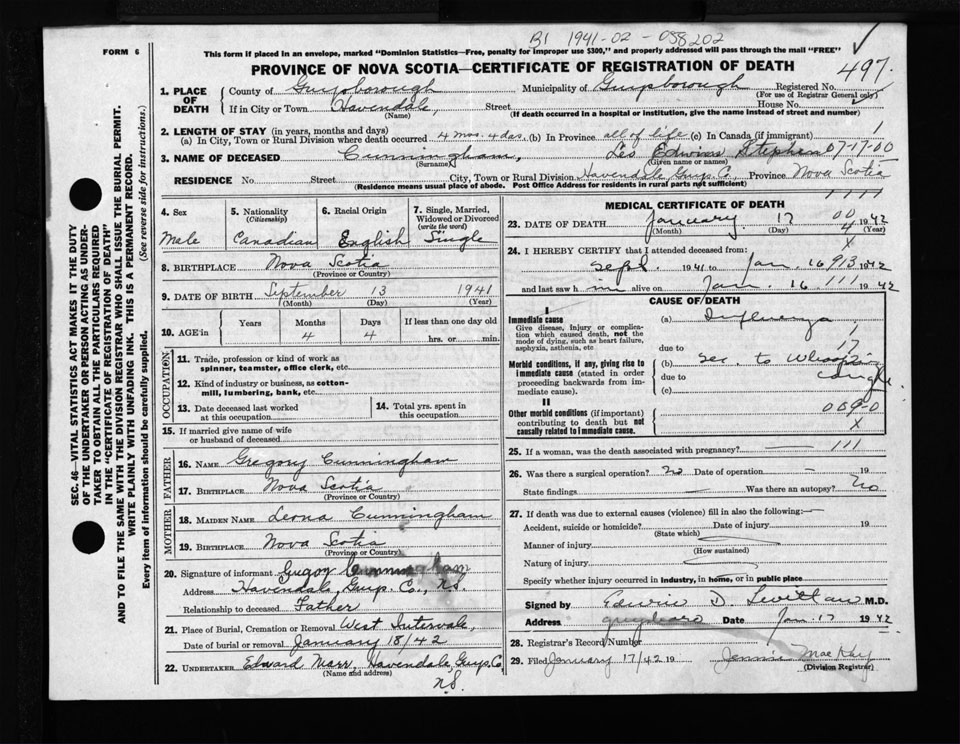 B1 1941-02-058202
FORM 6
This form if placed in an envelope, marked "Dominion Statistics—Free, penalty for improper use $300," and properly addressed will pass through the mail "FREE"
PROVINCE OF NOVA SCOTIA—CERTIFICATE OF REGISTRATION OF DEATH
497
1. PLACE OF DEATH
County of Guysborough Municipality of Guysborough Registered No.
(For use of Registrar General only)
If in City or Town Havendale, Street House No.
(Name) (If death occurred in a hospital or institution, give the name instead of street and number)
2. LENGTH OF STAY (in years, months and days)
(a) In City, Town or Rural Division where death occurred 4 mos. 4 das. (b) In Province all of life (c) In Canada (if immigrant) 1
3. NAME OF DECEASED Cunningham, Leo Edwin Stephen 07-17-00
(Surname) (Given name or names)
RESIDENCE No. Street City, Town or Rural Division Havendale Guys. Co., Province Nova Scotia
(Residence means usual place of abode. Post Office Address for residents in rural parts not sufficient)
1111
4. Sex Male
5. Nationality (Citizenship) Canadian
6. Racial Origin English
7. Single, Married, Widowed or Divorced (write the word) Single
8. BIRTHPLACE Nova Scotia
(Province or Country)
9. DATE OF BIRTH September 13 1941
(Month) (Day) (Year)
10. AGE in Years Months Days If less than one day old
4 4 hrs. or min.
OCCUPATION
11. Trade, profession or kind of work as spinner, teamster, office clerk, etc.
12. Kind of industry or business, as cotton-mill, lumbering, bank, etc.
13. Date deceased last worked at this occupation
14. Total yrs. spent in this occupation
15. If married give name of wife or husband of deceased
FATHER
16. NAME Gregory Cunningham
17. BIRTHPLACE Nova Scotia
(Province or Country)
MOTHER
18. MAIDEN NAME Leona Cunningham
19. BIRTHPLACE Nova Scotia
(Province or Country)
20. Signature of informant Gregory Cunningham
Address Havendale, Guys. Co., N.S.
Relationship to deceased Father
21. Place of Burial, Cremation or Removal West Intervale,
Date of burial or removal January 18/42
22. UNDERTAKER Edward Marr, Havendale, Guys. Co,
(Name and address) N.S.
MEDICAL CERTIFICATE OF DEATH
23. DATE OF DEATH January 17 00 1942
(Month) (Day) 4 (Year)
24. I HEREBY CERTIFY that I attended deceased from: x
Sept. 1941 to Jan. 16 913 1942
and last saw h im alive on Jan. 16 111 1942
CAUSE OF DEATH
I
Immediate cause (a) Influenza
Give disease, injury or complication which caused death, not the mode of dying, such as heart failure, asphyxia, asthenia, etc
1
due to 17
Morbid conditions, if any, giving rise to immediate cause (stated in order proceeding backwards from immediate cause).
(b) Sec. to Whooping cough.
due to
(c)
II
Other morbid conditions (if important) contributing to death but not causally related to immediate cause.
0090
x
25. If a woman, was the death associated with pregnancy? 111
26. Was there a surgical operation? No Date of operation — 19
State findings — Was there an autopsy? No
27. If death was due to external causes (violence) fill in also the following:—
Accident, suicide or homicide? Date of injury 19
(State which)
Manner of injury
(How sustained)
Nature of injury
Specify whether injury occurred in industry, in home, or in public place
Signed by Edwin D. M.D.
Address Guysboro Date Jan. 17 1942.
28. Registrar's Record Number
29. Filed January 17/42 19 Jennie MacKay
(Division Registrar)
SEC. 46—VITAL STATISTICS ACT MAKES IT THE DUTY
OF THE UNDERTAKER OR PERSON ACTING AS UNDERTAKER
TO OBTAIN ALL THE PARTICULARS REQUIRED
IN THE "CERTIFICATE OF REGISTRATION OF DEATH"
AND TO FILE THE SAME WITH THE DIVISION REGISTRAR WHO SHALL ISSUE THE BURIAL PERMIT.
WRITE PLAINLY WITH UNFADING INK. THIS IS A PERMANENT RECORD.
Every item of information should be carefully supplied. (See reverse side for instructions.)